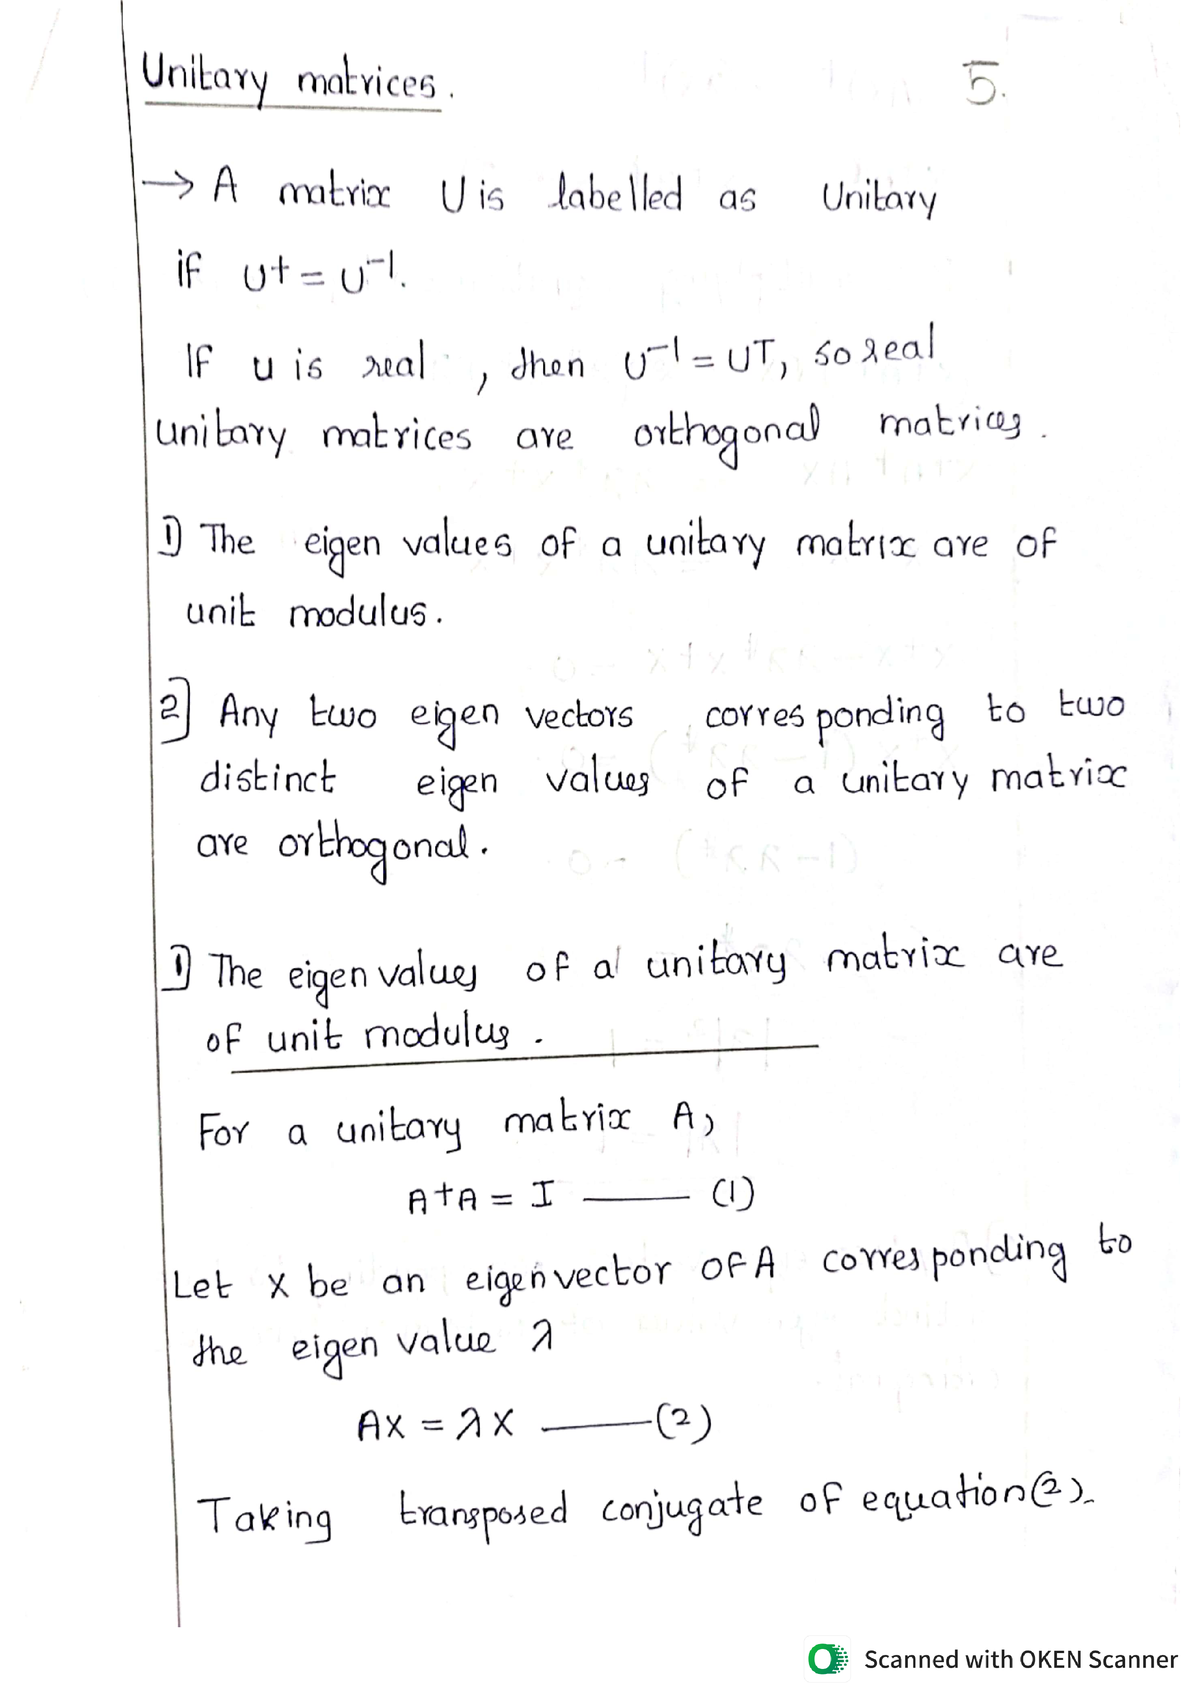 Unitary matrices.
5.
→ A matrix U is labelled as Unitary
if U† = U⁻¹.
If u is real, then U⁻¹ = UT, so real
unitary matrices are orthogonal matrices.
1) The eigen values of a unitary matrix are of
unit modulus.
2] Any two eigen vectors corresponding to two
distinct eigen values of a unitary matrix
are orthogonal.
1] The eigen values of a unitary matrix are
of unit modulus.
For a unitary matrix A,
A†A = I —— (1)
Let X be an eigenvector of A corresponding to
the eigen value λ
AX = λX ——(2)
Taking transposed conjugate of equation(2).
Scanned with OKEN Scanner